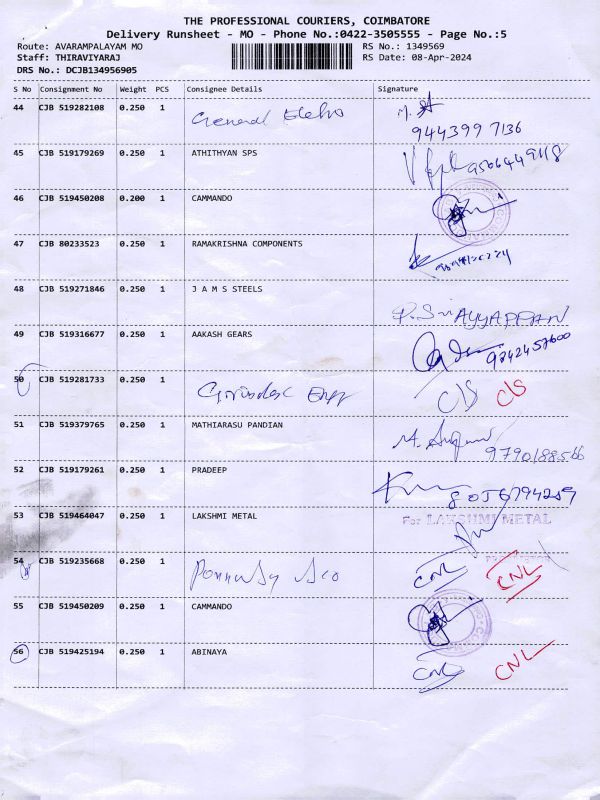 THE PROFESSIONAL COURIERS, COIMBATORE
Delivery Runsheet - MO - Phone No.:0422-3505555 - Page No.:5
Route: AVARAMPALAYAM MO RS No.: 1349569
Staff: THIRAVIYARAJ RS Date: 08-Apr-2024
DRS No.: DCJB134956905
S No Consignment No Weight PCS Consignee Details Signature
44 CJB 519282108 0.250 1 General
9443997136
45 CJB 519179269 0.250 1 ATHITHYAN SPS
46 CJB 519450208 0.200 1 CAMMANDO
47 CJB 80233523 0.250 1 RAMAKRISHNA COMPONENTS
48 CJB 519271846 0.250 1 J A M S STEELS
P. Sri AYYAPPAN
49 CJB 519316677 0.250 1 AAKASH GEARS
9842457600
50 CJB 519281733 0.250 1 C/S C/S
51 CJB 519379765 0.250 1 MATHIARASU PANDIAN
9790188566
52 CJB 519179261 0.250 1 PRADEEP
8056794259
53 CJB 519464047 0.250 1 LAKSHMI METAL For LAKSHMI METAL
54 CJB 519235668 0.250 1 CNL CNL
55 CJB 519450209 0.250 1 CAMMANDO
56 CJB 519425194 0.250 1 ABINAYA CNL CNL